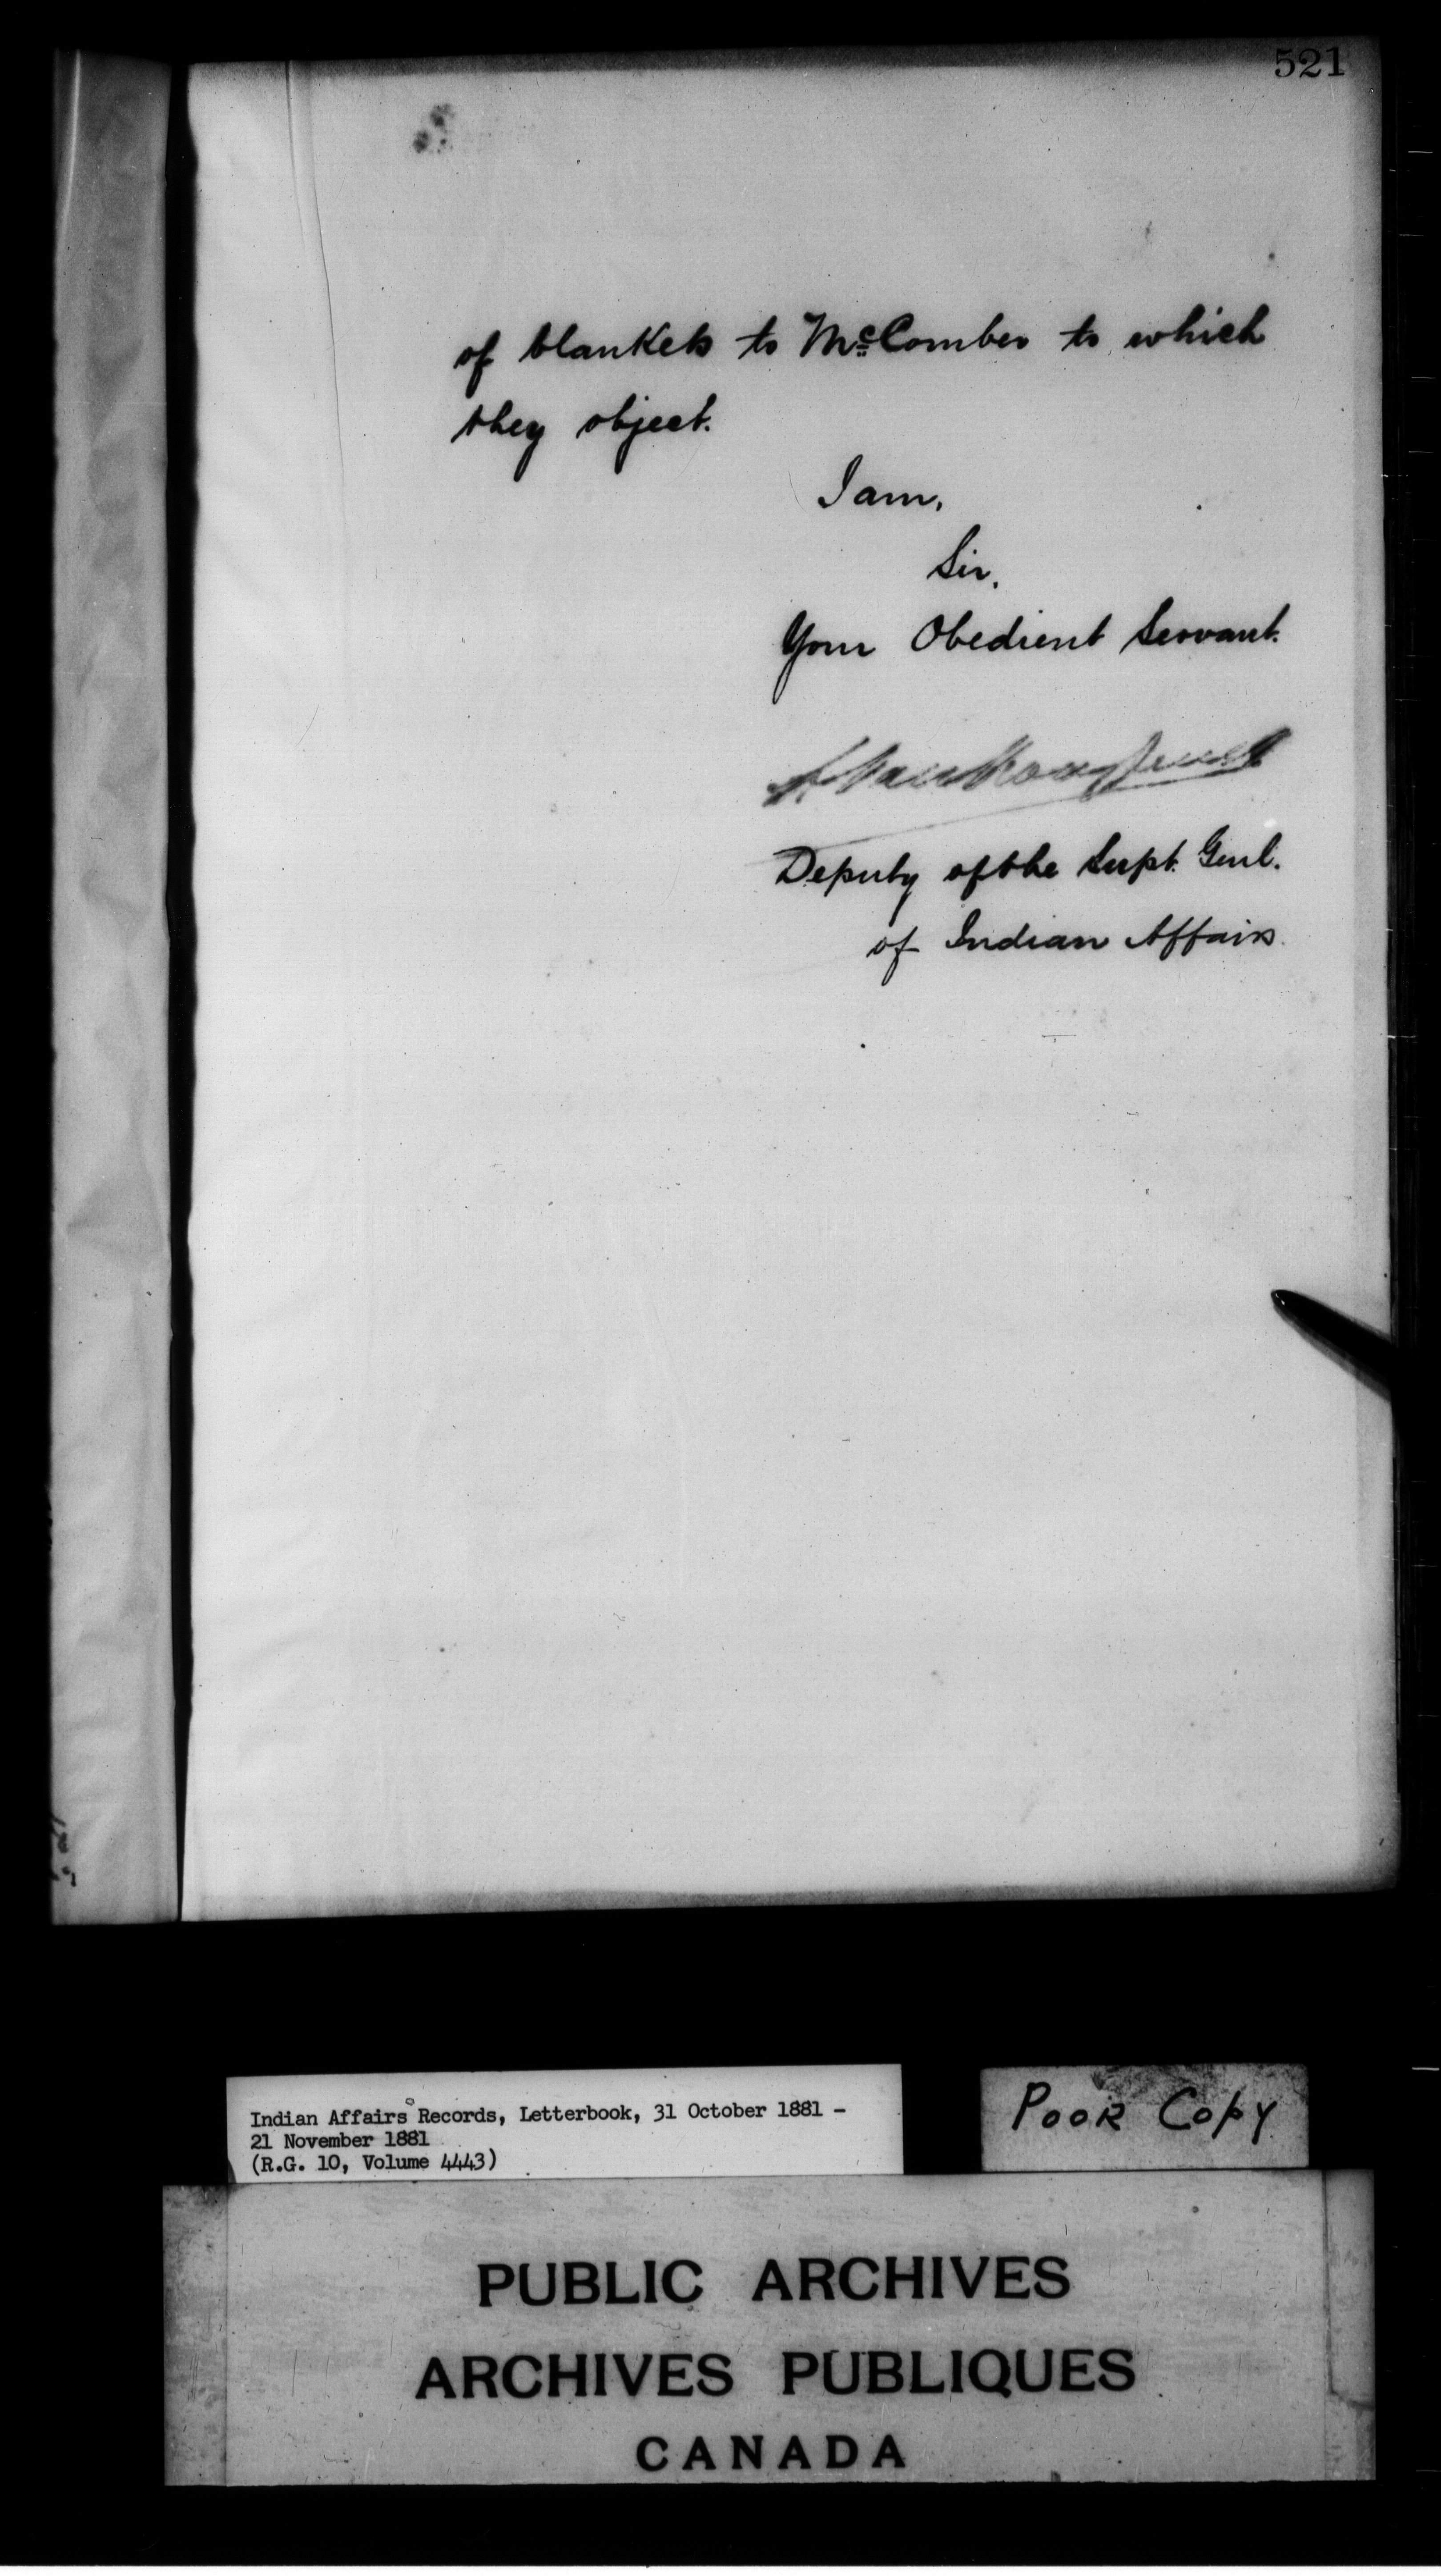 521
of blankets to McComber to which
they object.
I am,
Sir,
Your Obedient Servant.
L Vankoughnet
Deputy of the Supt. Genl.
of Indian Affairs
Indian Affairs Records, Letterbook, 31 October 1881 -
21 November 1881
(R.G. 10, Volume 4443)
Poor Copy
PUBLIC ARCHIVES
ARCHIVES PUBLIQUES
CANADA